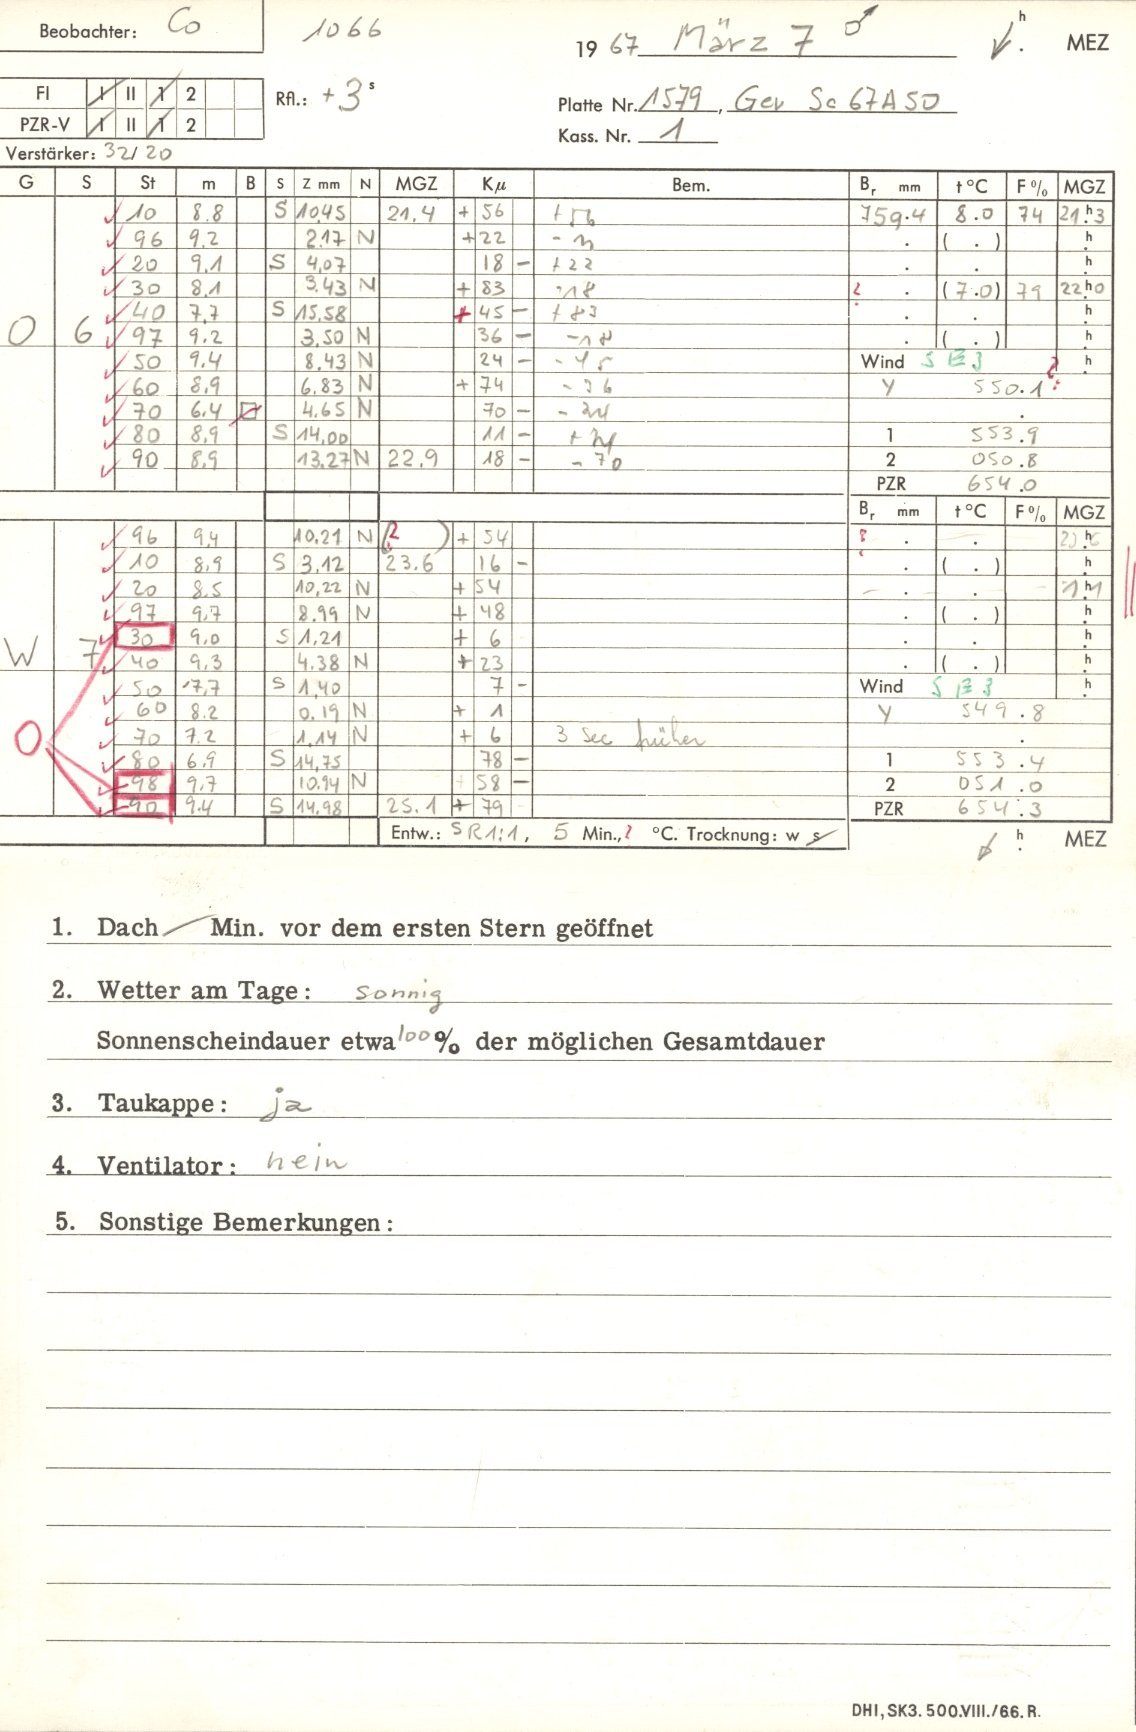 Beobachter: Co 1066 1967 März 7 ♂ h MEZ
FI I II 1 2 Rfl.: +3 s Platte Nr. 1579, Gev Sc 67A50
PZR-V I II 1 2 Kass. Nr. 1
Verstärker: 32/20
G S St m B S Z mm N MGZ Kµ Bem. Br mm t °C F % MGZ
10 8.8 S 10,45 21,4 + 56 759.4 8.0 74 21.h3
96 9.2 2.17 N +22 . ( . ) h
20 9,1 S 4,07 18 - +22 . . h
30 8,1 3.43 N + 83 -18 ? . (7.0) 79 22.h0
40 7,7 S 15,58 + 45 - +83 . . h
O 6 97 9.2 3,50 N 36 - -18 . ( . ) h
50 9.4 8.43 N 24 - -45 Wind S E 3 h
60 8,9 6.83 N + 74 -36 Y 550.1 ?
70 6.4 4.65 N 70 - -24 .
80 8,9 S 14,00 11 - 1 553.9
90 8,9 13,27 N 22,9 18 - -70 2 050.8
PZR 654.0
Br mm t °C F % MGZ
96 9,4 10.21 N (? ) + 54 ? . . h
10 8,9 S 3,12 23.6 16 - . ( . ) h
20 8.5 10,22 N + 54 . . h
97 9,7 8.99 N + 48 . ( . ) h
30 9,0 S 1,21 + 6 . . h
W 7 40 9,3 4.38 N + 23 . ( . ) h
50 7,7 S 1,40 7 - Wind S E 3 h
60 8.2 0.19 N + 1 Y 549.8
O 70 7.2 1,14 N + 6 3 Sec früher .
80 6,9 S 14,75 78 - 1 553.4
98 9,7 10.94 N 58 - 2 051.0
90 9.4 S 14,98 25.1 + 79 PZR 654.3
Entw.: SR 1:1, 5 Min., ? °C. Trocknung: w s h MEZ
1. Dach Min. vor dem ersten Stern geöffnet
2. Wetter am Tage: sonnig
Sonnenscheindauer etwa 100 % der möglichen Gesamtdauer
3. Taukappe: ja
4. Ventilator: nein
5. Sonstige Bemerkungen:
DHI, SK3. 500.VIII./66. R.